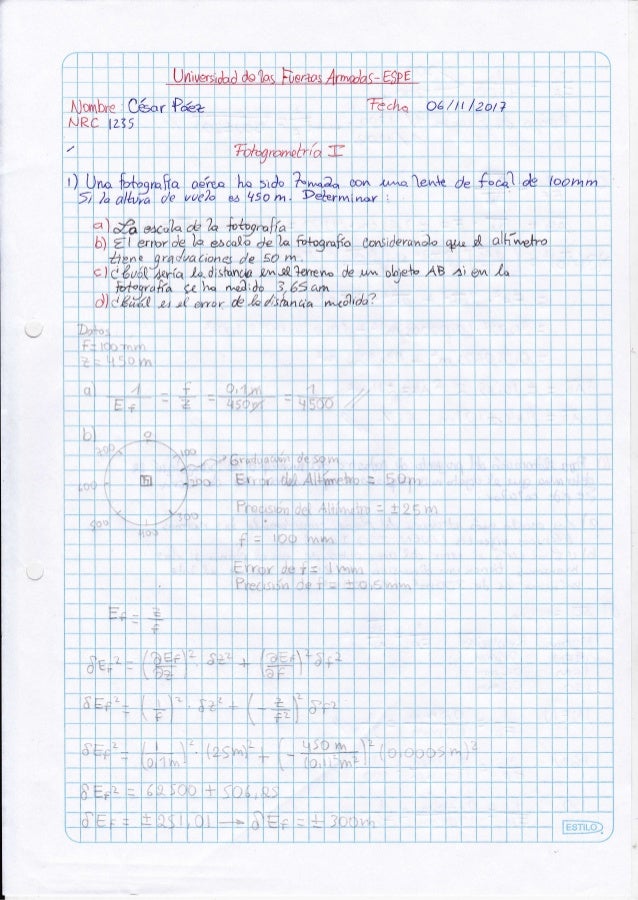 Universidad de las Fuerzas Armadas - ESPE
Nombre: César Páez Fecha 06/11/2017
NRC 1235
Fotogrametría I
1) Una fotografía aérea ha sido tomada con una lente de focal de 100mm
Si la altura de vuelo es 450 m. Determinar:
a) La escala de la fotografía
b) El error de la escala de la fotografía considerando que el altímetro
tiene graduaciones de 50 m.
c) ¿Cuál sería la distancia en el terreno de un objeto AB si en la
fotografía se ha medido 3,65 cm
d) ¿Cuál es el error de la distancia medida?
Datos
F = 100 mm
Z = 450 m
a) 1/Ef = f/z = 0,1m/450m = 1/4500 //
b) 0
700 100
Graduación de 50m
600 h 200 Error del Altímetro = 50m
500 300 Precisión del Altímetro = ± 25 m
400
f = 100 mm
Error de f = 1mm
Precisión de f = ± 0,5mm
Ef = z/f
δEf² = (∂Ef/∂z)² · δz² + (∂Ef/∂f)² δf²
δEf² = (1/f)² · δz² + (- z/f²)² δf²
δEf² = (1/0,1m)² · (25m)² + (- 450 m/(0,1)²m²)² (0,0005m)²
δEf² = 62500 + 506,25
δEf = ± 251,01 → δEf = ± 300m
ESTILO